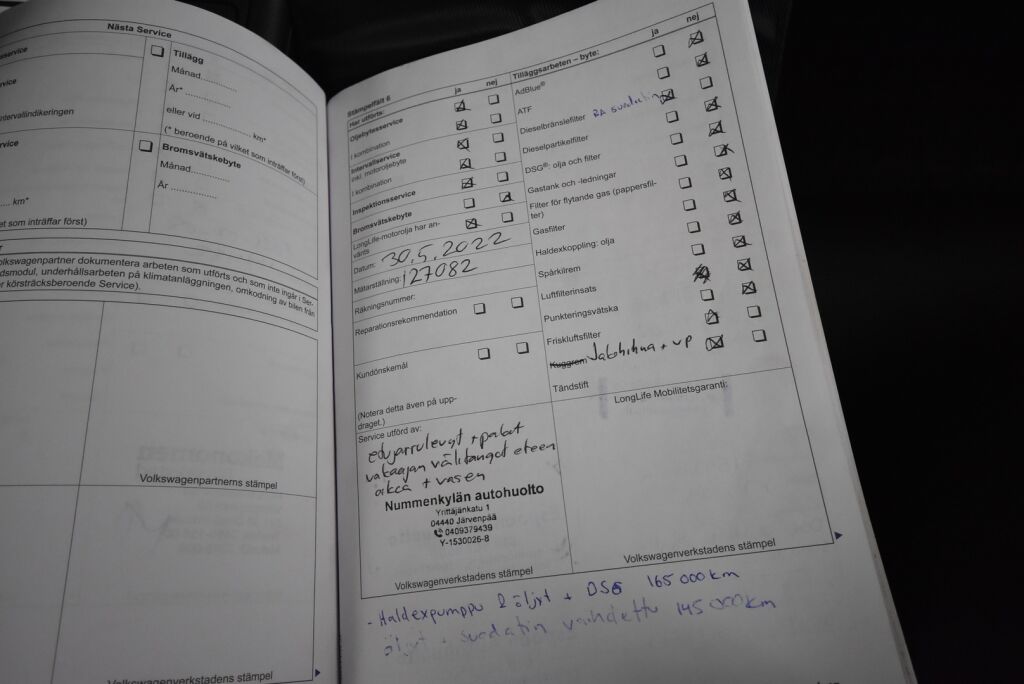 Nästa Service
Tillägg
Månad..............
År* ................
eller vid .................. km*
(* beroende på vilket som inträffar först)
Bromsvätskebyte
Månad..............
År ................
..... km*
et som inträffar först)
olkswagenpartner dokumentera arbeten som utförts och som inte ingår i Ser-
dsmodul, underhållsarbeten på klimatanläggningen, omkodning av bilen från
r körsträcksberoende Service).
Volkswagenpartnerns stämpel
Volkswagenverkstadens stämpel
Stämpelfält 6
Har utförts:
ja nej
Oljebytesservice
I kombination
Intervallservice
inkl. motoroljebyte
I kombination
Inspektionsservice
Bromsvätskebyte
LongLife-motorolja har an-
vänts
Datum: 30.5.2022
Mätarställning: 127082
Räkningsnummer:
Reparationsrekommendation
Kundönskemål
(Notera detta även på upp-
draget.)
Tilläggsarbeten – byte:
ja nej
AdBlue®
ATF
Dieselbränslefilter RA suodatin
Dieselpartikelfilter
DSG®: olja och filter
Gastank och -ledningar
Filter för flytande gas (pappersfil-
ter)
Gasfilter
Haldexkoppling: olja
Spårkilrem
Luftfilterinsats
Punkteringsvätska
Friskluftsfilter
Kuggrem Jakohihna + vp
Tändstift
Service utförd av:
etujarrulevyt + palat
vakaajan välitangot eteen
oikea + vasen
Nummenkylän autohuolto
Yrittäjänkatu 1
04440 Järvenpää
0409379439
Y-1530026-8
Volkswagenverkstadens stämpel
LongLife Mobilitetsgaranti:
Volkswagenverkstadens stämpel
- Haldexpumppu & öljyt + DSG 165 000 km
öljyt + suodatin vaihdettu 145 000 km